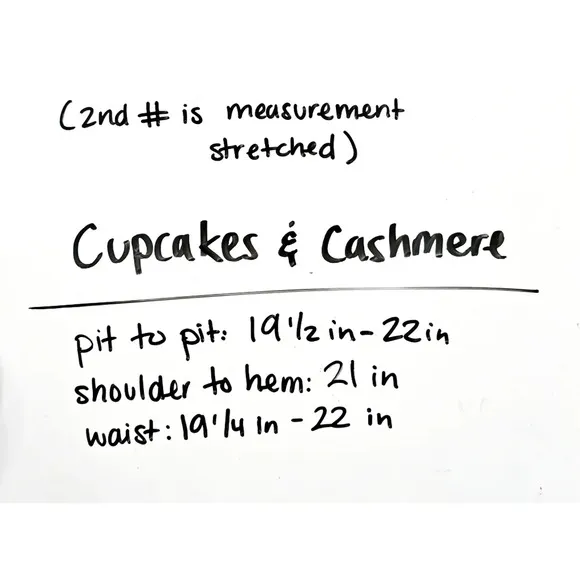 (2nd # is measurement
stretched)
Cupcakes & Cashmere
pit to pit: 19 1/2 in - 22 in
shoulder to hem: 21 in
waist: 19 1/4 in - 22 in